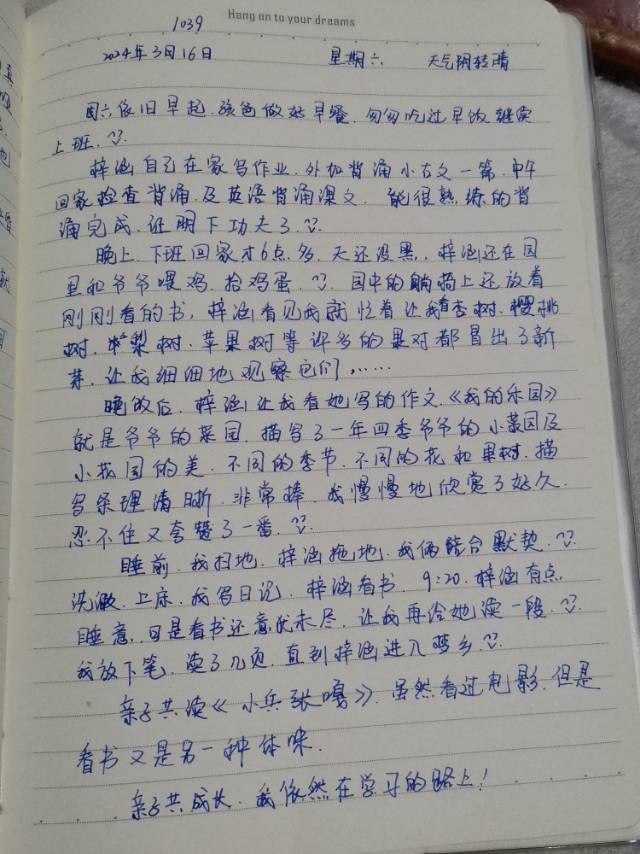 Hang on to your dreams
1039
2024年3月16日 星期六 天气阴转晴
周六依旧早起.孩爸做好早餐.匆匆吃过早饭继续
上班.
梓涵自己在家写作业.外加背诵小古文一篇.中午
回家检查背诵.及英语背诵课文.能很熟练的背
诵完成.证明下功夫了.
晚上.下班回家才6点多.天还没黑.梓涵还在园
里和爷爷喂鸡.拾鸡蛋.园中的躺椅上还放着
刚刚看的书,梓涵看见我就忙着让我看杏树.樱桃
树.梨树.苹果树等许多的果树都冒出了新
芽.让我细细地观察它们,……
晚饭后.梓涵让我看她写的作文《我的乐园》
就是爷爷的菜园.描写了一年四季爷爷的小菜园及
小花园的美.不同的季节.不同的花和果树.描
写条理清晰.非常棒.我慢慢地欣赏了好久.
忍不住又夸赞了一番.
睡前.我扫地.梓涵拖地.我俩结合默契.
洗漱.上床.我写日记.梓涵看书.9:20.梓涵有点
睡意.可是看书还意犹未尽.让我再给她读一段.
我放下笔.读了几页.直到梓涵进入梦乡.
亲子共读《小兵张嘎》.虽然看过电影.但是
看书又是另一种体味.
亲子共成长.我依然在学习的路上!